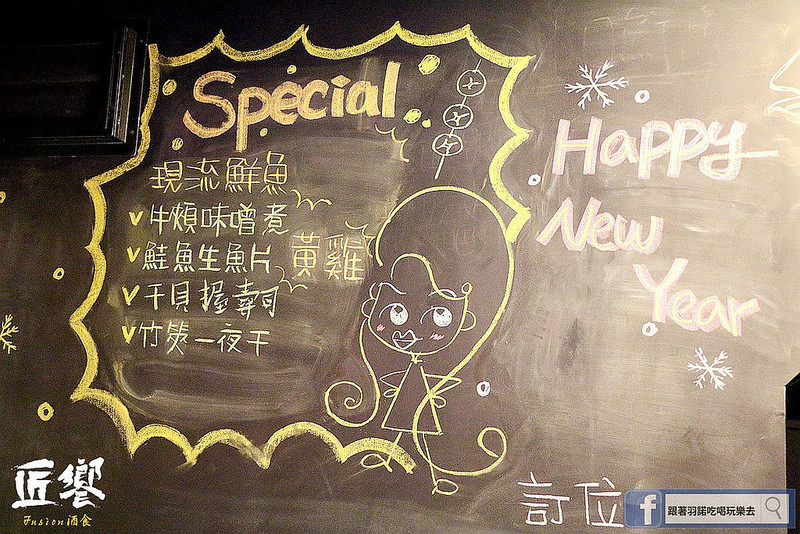 Special
現流鮮魚
牛頰味噌煮
鮭魚生魚片 黃雞
干貝握壽司
竹筴一夜干
Happy
New
Year
訂位
匠饗
Fusion酒食
跟著羽諾吃喝玩樂去